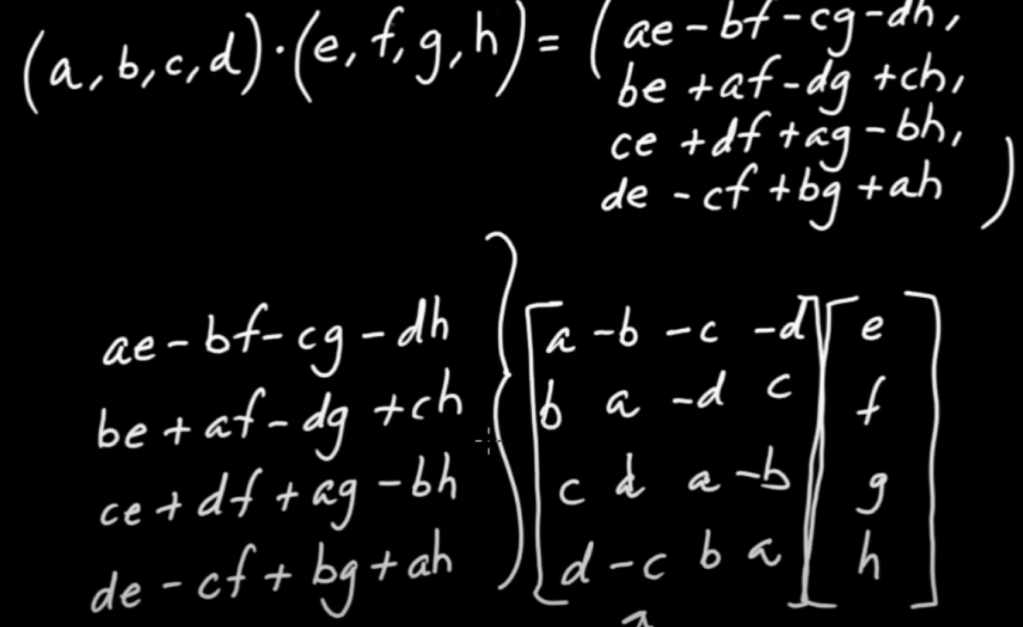 (a, b, c, d) · (e, f, g, h) = ( ae - bf - cg - dh,
be + af - dg + ch,
ce + df + ag - bh,
de - cf + bg + ah )
ae - bf - cg - dh
be + af - dg + ch
ce + df + ag - bh
de - cf + bg + ah
} [ a -b -c -d ] [ e ]
b a -d c f
c d a -b g
d -c b a h